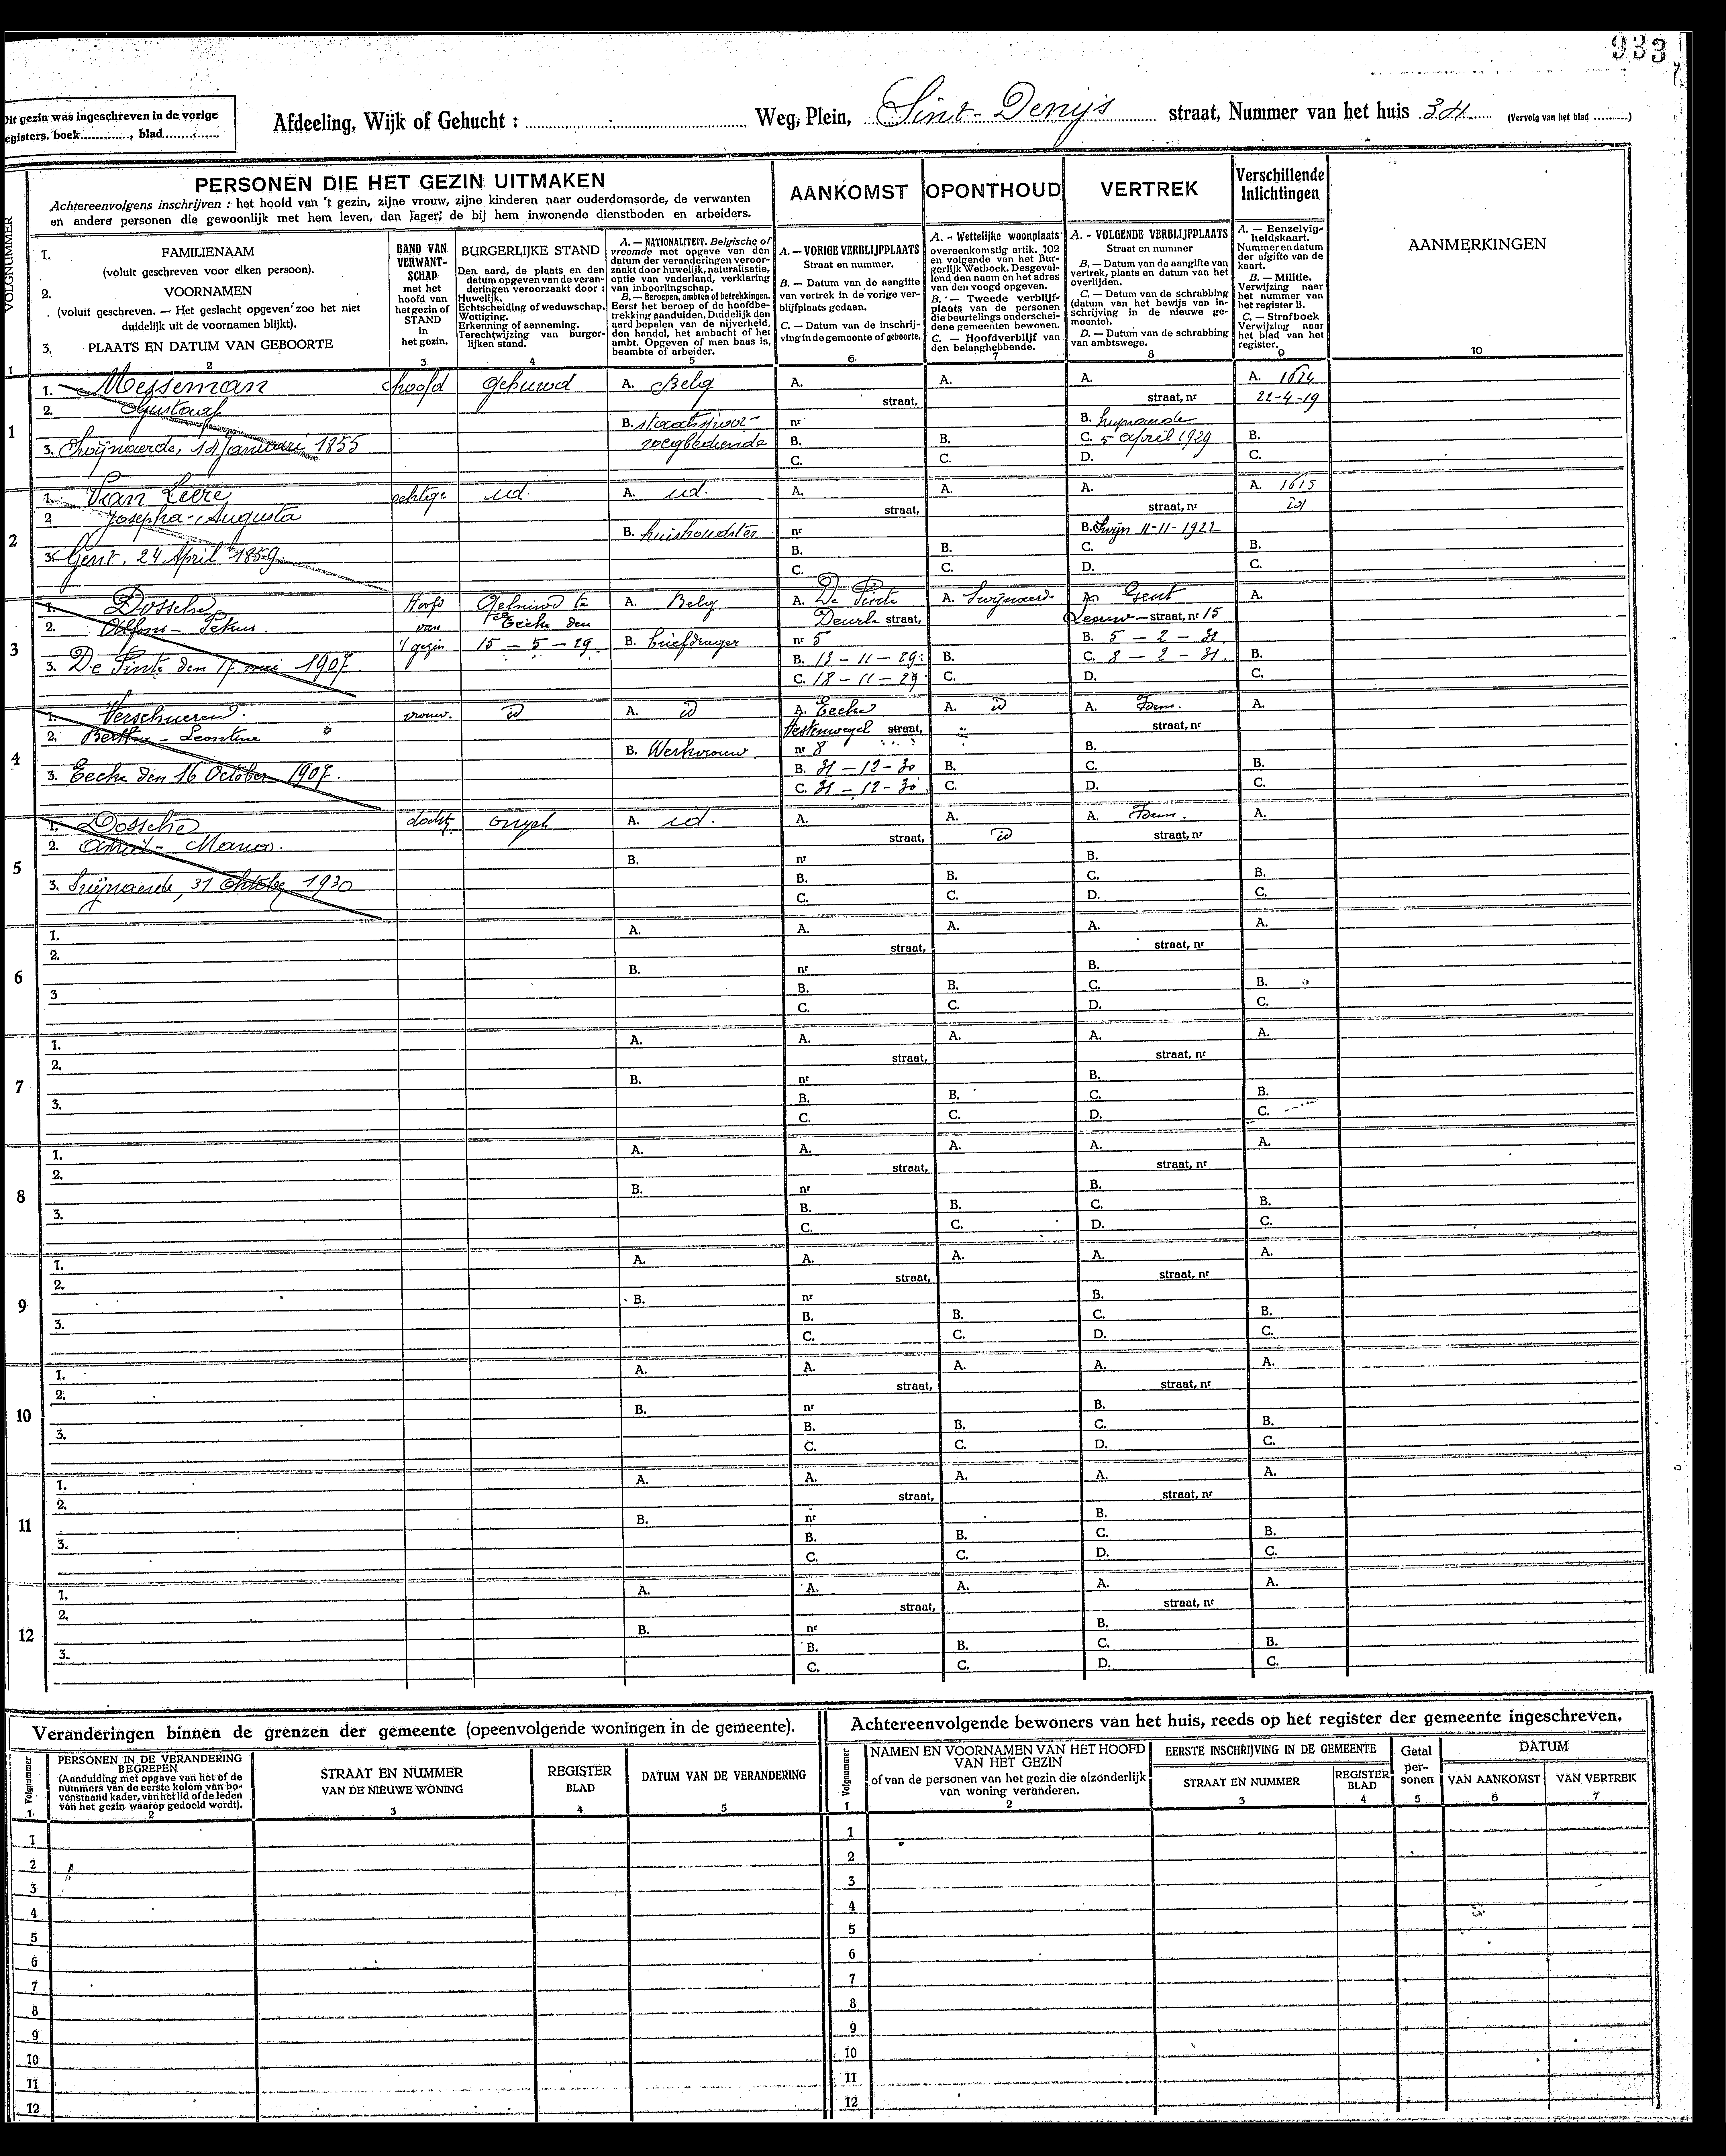 933
Dit gezin was ingeschreven in de vorige
registers, boek............, blad..............
Afdeeling, Wijk of Gehucht : .......... Weg, Plein, Sint-Denijs straat, Nummer van het huis 34 (Vervolg van het blad ..........)
PERSONEN DIE HET GEZIN UITMAKEN
Achtereenvolgens inschrijven : het hoofd van 't gezin, zijne vrouw, zijne kinderen naar ouderdomsorde, de verwanten
en andere personen die gewoonlijk met hem leven, dan lager, de bij hem inwonende dienstboden en arbeiders.
AANKOMST
OPONTHOUD
VERTREK
Verschillende
Inlichtingen
VOLGNUMMER
1
1. FAMILIENAAM
(voluit geschreven voor elken persoon).
2. VOORNAMEN
(voluit geschreven. — Het geslacht opgeven zoo het niet
duidelijk uit de voornamen blijkt).
3. PLAATS EN DATUM VAN GEBOORTE
2
BAND VAN
VERWANT-
SCHAP
met het
hoofd van
het gezin of
STAND
in
het gezin.
3
BURGERLIJKE STAND
Den aard, de plaats en den
datum opgeven van de veran-
deringen veroorzaakt door :
Huwelijk.
Echtscheiding of weduwschap.
Wettiging.
Erkenning of aanneming.
Terechtwijzing van burger-
lijken stand.
4
A. — NATIONALITEIT. Belgische of
vreemde met opgave van den
datum der veranderingen veroor-
zaakt door huwelijk, naturalisatie,
optie van vaderland, verklaring
van inboorlingschap.
B. — Beroepen, ambten of betrekkingen.
Eerst het beroep of de hoofdbe-
trekking aanduiden. Duidelijk den
aard bepalen van de nijverheid,
den handel, het ambacht of het
ambt. Opgeven of men baas is,
beambte of arbeider.
5
A. — VORIGE VERBLIJFPLAATS
Straat en nummer.
B. — Datum van de aangifte
van vertrek in de vorige ver-
blijfplaats gedaan.
C. — Datum van de inschrij-
ving in de gemeente of geboorte.
6
A. - Wettelijke woonplaats
overeenkomstig artik. 102
en volgende van het Bur-
gerlijk Wetboek. Desgeval-
lend den naam en het adres
van den voogd opgeven.
B. — Tweede verblijf-
plaats van de personen
die beurtelings onderschei-
dene gemeenten bewonen.
C. — Hoofdverblijf van
den belanghebbende.
7
A. - VOLGENDE VERBLIJFPLAATS
Straat en nummer
B. — Datum van de aangifte van
vertrek, plaats en datum van het
overlijden.
C. — Datum van de schrabbing
(datum van het bewijs van in-
schrijving in de nieuwe ge-
meente).
D. — Datum van de schrabbing
van ambtswege.
8
A. — Eenzelvig-
heidskaart.
Nummer en datum
der afgifte van de
kaart.
B. — Militie.
Verwijzing naar
het nummer van
het register B.
C. — Strafboek
Verwijzing naar
het blad van het
register.
9
AANMERKINGEN
10
1
1. Messeman hoofd gehuwd A. Belg A. A. A. A. 1614
2. Gustaaf straat, straat, nr 22-4-19
B. staatsspoor- nr B.
3. Swijnaerde, 14 Januari 1855 wegbediende B. B. C. 5 april 1929 B.
C. C. D. C.
2
1. Van Leere echtge id. A. id. A. A. A. A. 1615
2 Josepha-Augusta straat, straat, nr id
B. huishoudster nr B. Swijn 11-11-1922
3. Gent, 24 April 1859 B. B. C. B.
C. C. D. C.
3
1. Dossche Hoofd Gehuwd te A. Belg A. De Pinte A. Swijnaerde A. Gent A.
2. Alfons - Petrus. van Eecke den Deurle straat, Leeuw-straat, nr 15
't gezin 15 - 5 - 29. B. briefdrager nr 5 B. 5 - 2 - 31
3. De Pinte den 17 mei 1907 B. 13 - 11 - 29 B. C. 8 - 2 - 31. B.
C. 18 - 11 - 29 C. D. C.
4
1. Verschueren. vrouw. id A. id A. Eecke A. id A. Idem. A.
2. Bertha - Leontine straat, straat, nr
B. Werkvrouw nr 8 B.
3. Eecke den 16 October 1907. B. 31 - 12 - 30 B. C. B.
C. 31 - 12 - 30 C. D. C.
5
1. Dossche docht. ongeh A. id. A. A. A. Idem. A.
2. Maria. straat, id straat, nr
B. nr B.
3. Swijnaerde, 31 Oktober 1930 B. B. C. B.
C. C. D. C.
6
1. A. A. A. A. A.
2. straat, straat, nr
B. nr B.
3 B. B. C. B.
C. C. D. C.
7
1. A. A. A. A. A.
2. straat, straat, nr
B. nr B.
3. B. B. C. B.
C. C. D. C.
8
1. A. A. A. A. A.
2. straat, straat, nr
B. nr B.
3. B. B. C. B.
C. C. D. C.
9
1. A. A. A. A. A.
2. straat, straat, nr
B. nr B.
3. B. B. C. B.
C. C. D. C.
10
1. A. A. A. A. A.
2. straat, straat, nr
B. nr B.
3. B. B. C. B.
C. C. D. C.
11
1. A. A. A. A. A.
2. straat, straat, nr
B. nr B.
3. B. B. C. B.
C. C. D. C.
12
1. A. A. A. A. A.
2. straat, straat, nr
B. nr B.
3. B. B. C. B.
C. C. D. C.
Veranderingen binnen de grenzen der gemeente (opeenvolgende woningen in de gemeente).
Volgnummer
1.
PERSONEN IN DE VERANDERING
BEGREPEN
(Aanduiding met opgave van het of de
nummers van de eerste kolom van bo-
venstaand kader, van het lid of de leden
van het gezin waarop gedoeld wordt).
2
STRAAT EN NUMMER
VAN DE NIEUWE WONING
3
REGISTER
BLAD
4
DATUM VAN DE VERANDERING
5
1
2
3
4
5
6
7
8
9
10
11
12
Achtereenvolgende bewoners van het huis, reeds op het register der gemeente ingeschreven.
Volgnummer
1
NAMEN EN VOORNAMEN VAN HET HOOFD
VAN HET GEZIN
of van de personen van het gezin die afzonderlijk
van woning veranderen.
2
EERSTE INSCHRIJVING IN DE GEMEENTE
STRAAT EN NUMMER
3
REGISTER
BLAD
4
Getal
per-
sonen
5
DATUM
VAN AANKOMST
6
VAN VERTREK
7
1
2
3
4
5
6
7
8
9
10
11
12